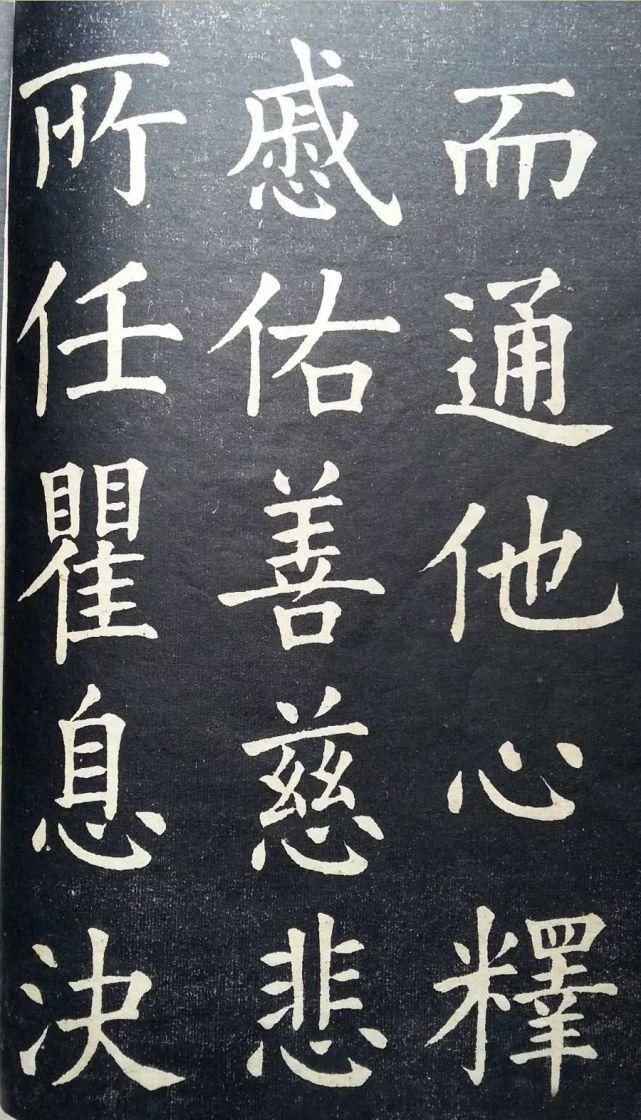 而通他心釋
慼佑善慈悲
所任瞿息決